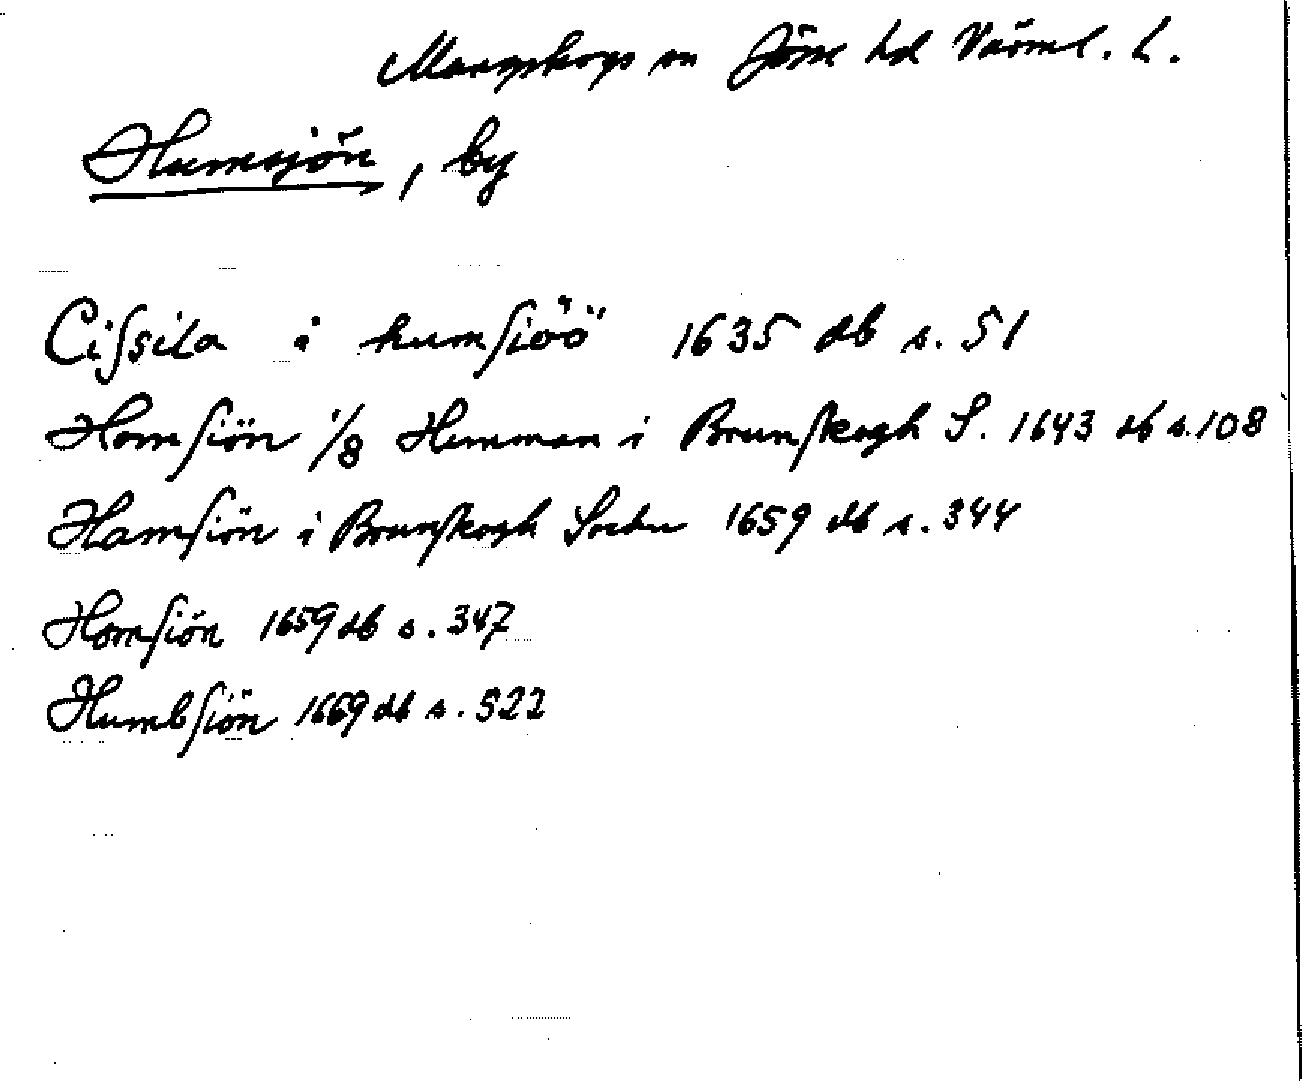 Mangskogs sn Jösse hd Värml. l.
Humsjön, by
Cissila i humsiöö 1635 db s. 51
Homsiön 1/8 Hemman i Brunskogh S. 1643 db s. 108
Hamsiön i Brunskogh Sochn 1659 db s. 344
Homsiön 1659 db s. 347
Humbsiön 1669 db s. 522